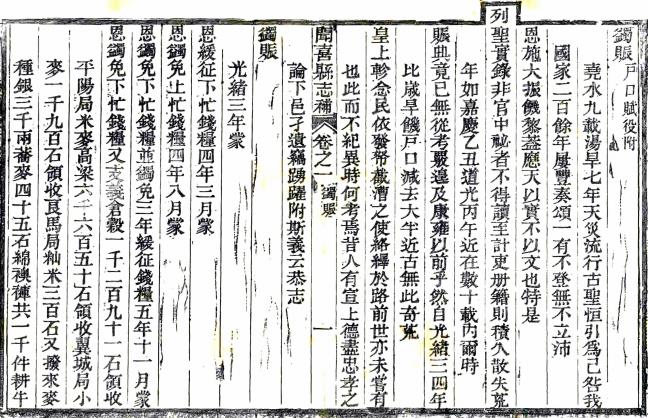 蠲賑戶口賦役附
堯水九載湯旱七年天災流行古聖恒引為己咎我
國家二百餘年屢豐奏頌一有不登無不立沛
恩施大拯饑黎蓋應天以實不以文也特是
列
聖實錄非官中祕者不得讀至計吏册籍則積久散失荒
年如嘉慶乙丑道光丙午近在數十載內爾時
賑典竟已無從考覈遑及康雍以前乎然自光緒三四年
比歲旱饑戶口減去大半近古無此奇荒
皇上軫念民依發帑截漕之使絡繹於路前世亦未嘗有
也此而不紀異時何考焉昔人有宣上德盡忠孝之
聞喜縣志補 卷之一 蠲賑 一
論下邑孑遺竊踴躍附斯義云恭志
蠲賑
光緒三年蒙
恩緩征下忙錢糧四年三月蒙
恩蠲免上忙錢糧四年八月蒙
恩蠲免下忙錢糧並蠲免三年緩征錢糧五年十一月蒙
恩蠲免下忙錢糧又支義倉穀一千二百九十一石領收
平陽局米麥高粱六千六百五十石領收翼城局小
麥一千九百石領收艮馬局籼米三百石又撥來麥
種銀三千兩蕎麥四十五石綿襖褲共一千件耕牛